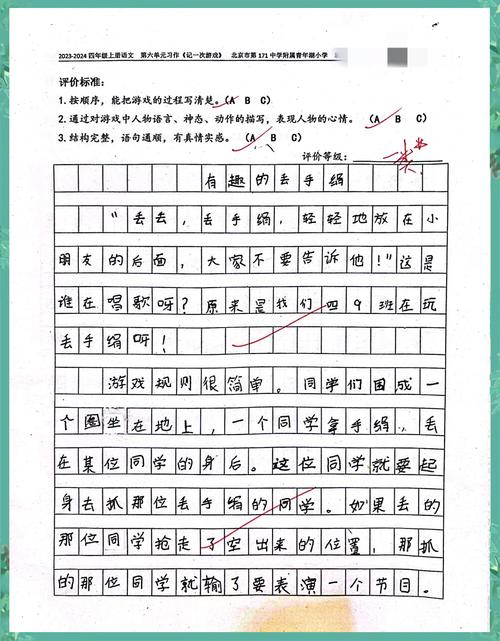 2023-2024 四年级上册语文 第六单元习作《记一次游戏》 北京市第 171 中学附属青年湖小学
评价标准：
1. 按顺序，能把游戏的过程写清楚。（A B C）
2. 通过对游戏中人物语言、神态、动作的描写，表现人物的心情。（A B C）
3. 结构完整，语句通顺，有真情实感。（A B C）
评价等级：一类
有趣的丢手绢
“丢去，丢手绢，轻轻地放在小
朋友的后面，大家不要告诉他！”这是
谁在唱歌呀？原来是我们四9班在玩
丢手绢呀！
游戏规则很简单。同学们围成一
个圈坐在地上，一个同学拿手绢，丢
在某位同学的身后。这位同学就要起
身去抓那位丢手绢的同学。如果丢的
那位同学抢走了空出来的位置，那抓
的那位同学就输了要表演一个节目。